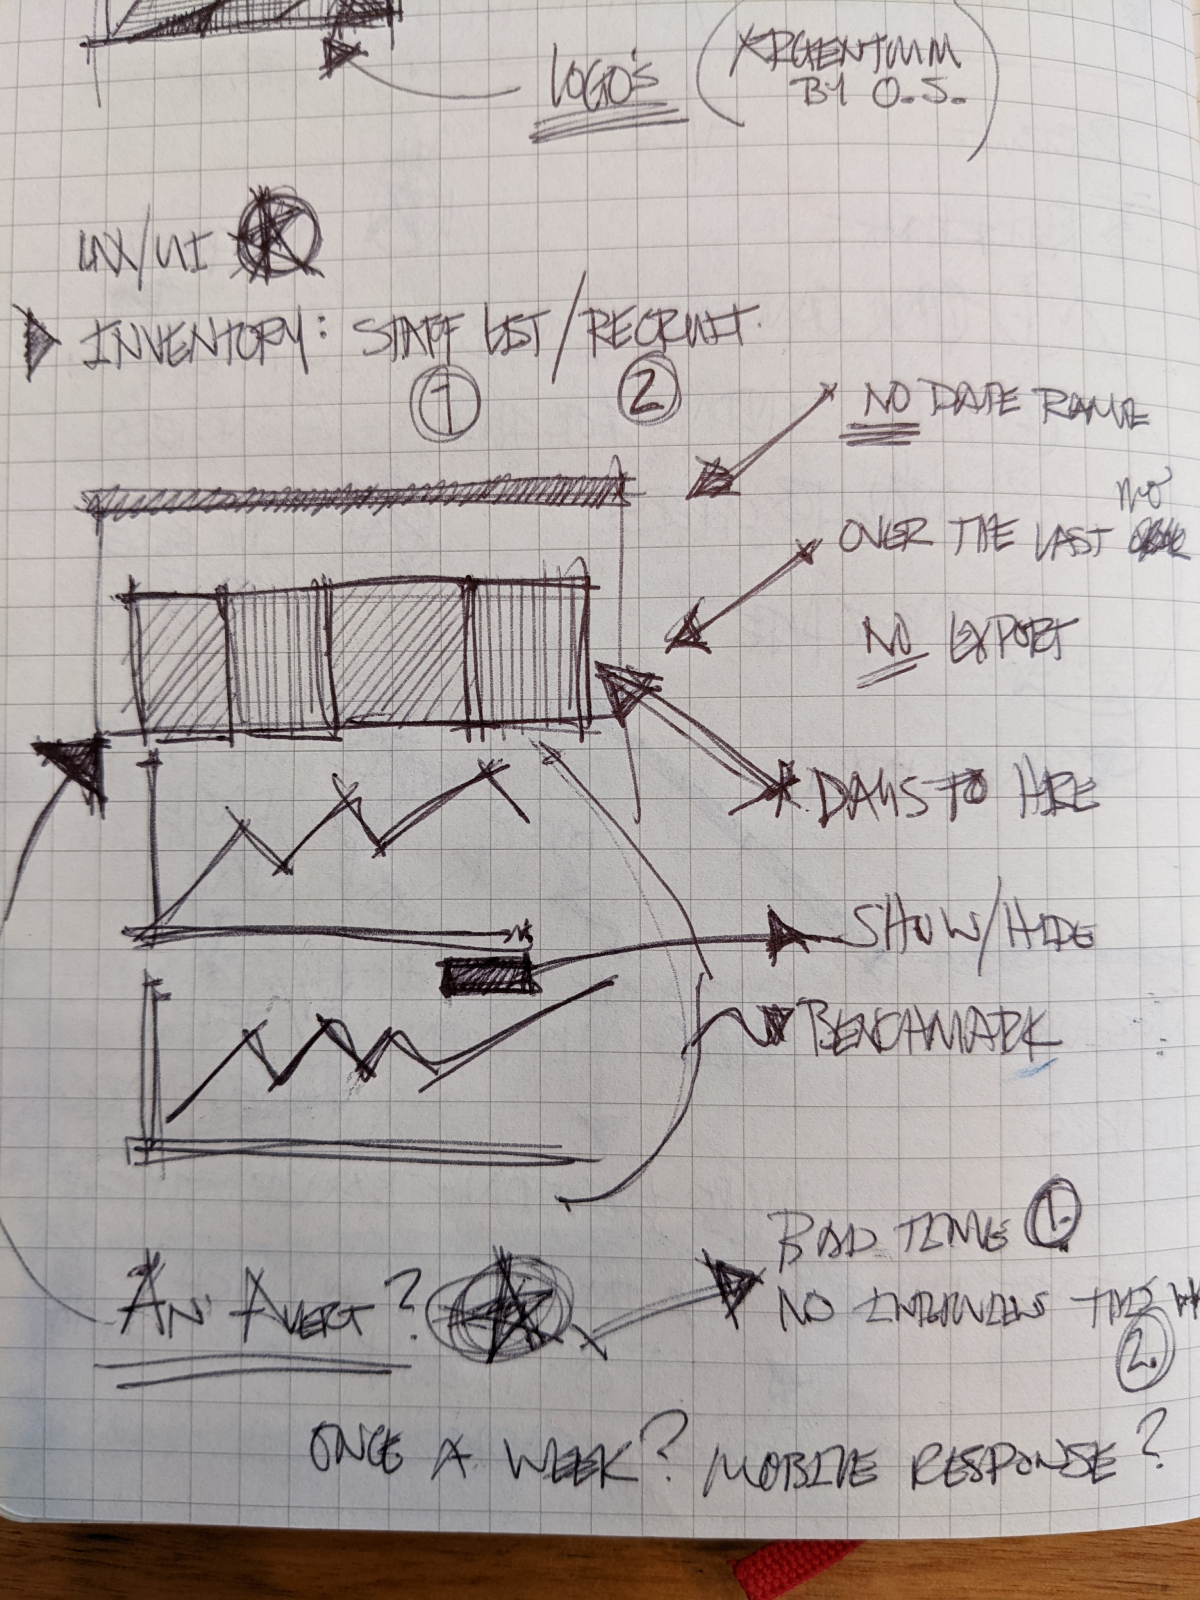 LOGO'S
(ARGENTUM
BY O.S.)
UX/UI
INVENTORY: STAFF LIST/RECRUIT.
1 2
NO DATE RANGE
MO
OVER THE LAST
NO EXPORT
DAYS TO HIRE
SHOW/HIDE
BENCHMARK
BAD TIME 1.
AN ALERT?
NO INTERVIEWS THIS WK
2.
ONCE A WEEK? MOBILE RESPONSE?